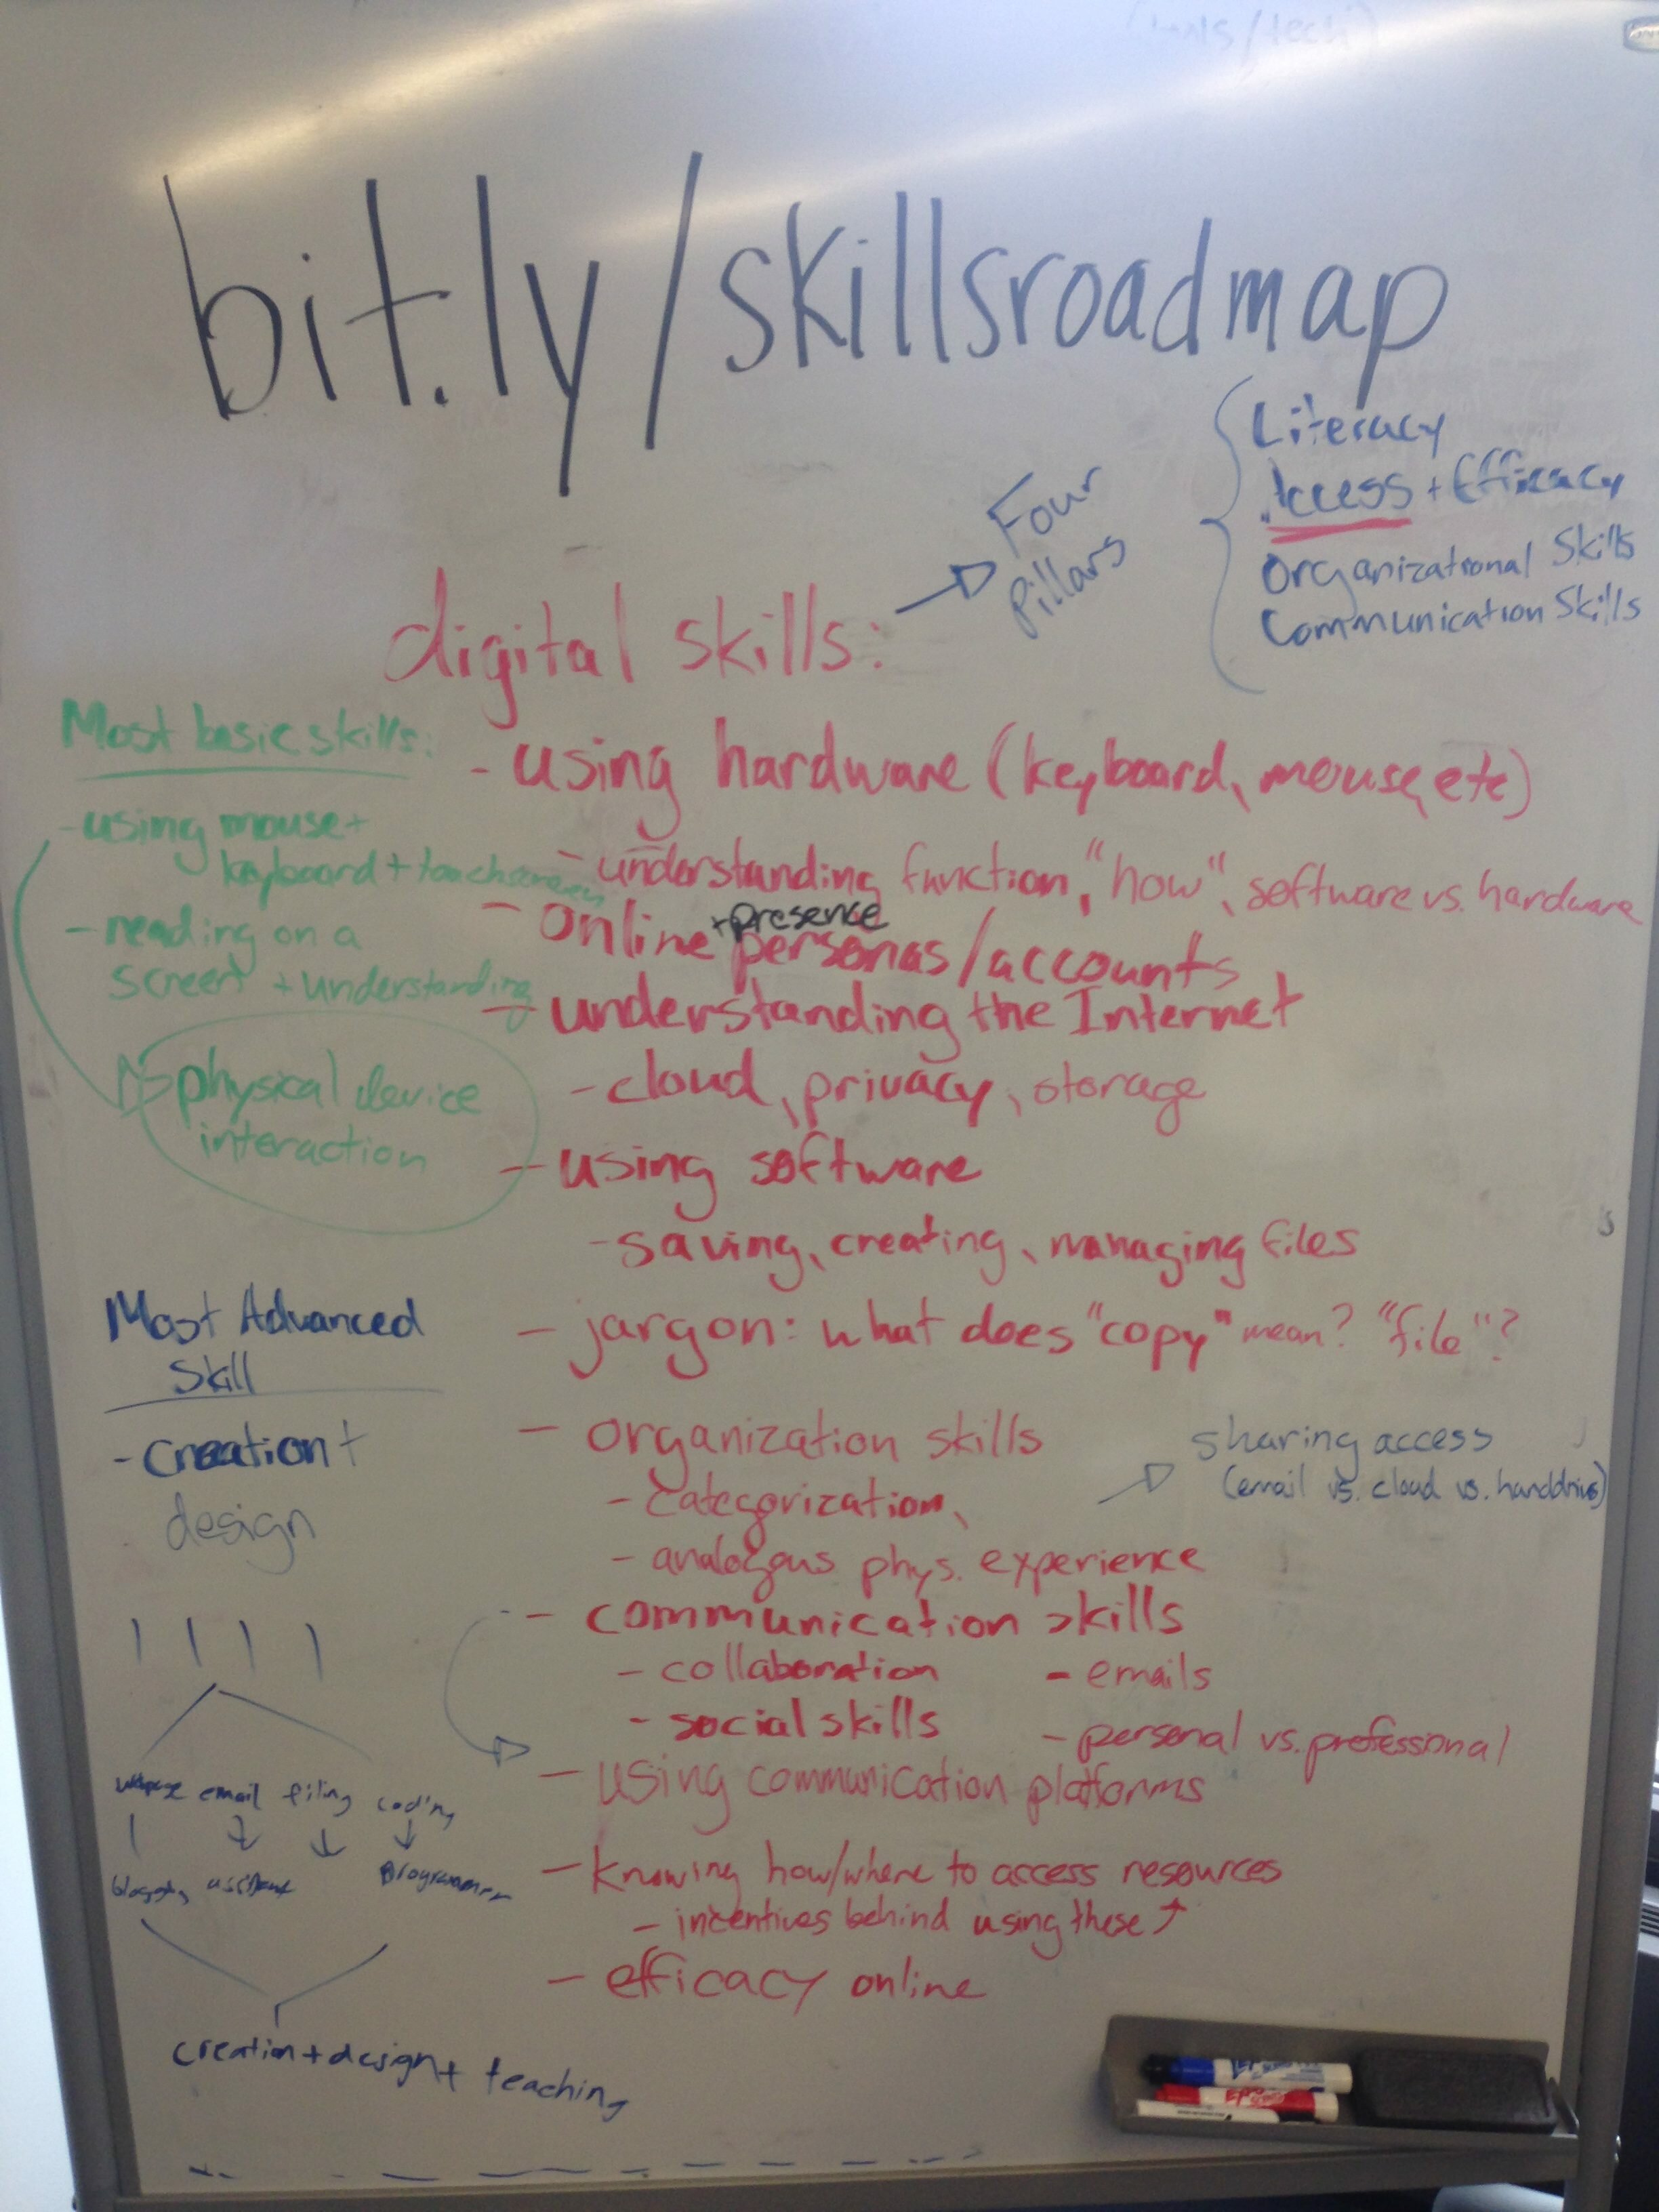 bit.ly/skillsroadmap
Four
Pillars
Literacy
Access + Efficacy
Organizational Skills
Communication Skills
digital skills:
- using hardware (keyboard, mouse, etc)
- understanding function, "how", software vs. hardware
+ presence
- online personas/accounts
- understanding the Internet
- cloud, privacy, storage
- using software
- saving, creating, managing files
- jargon: what does "copy" mean? "file"?
- organization skills
- categorization,
- analogous phys. experience
sharing access
(email vs. cloud vs. harddrive)
- communication skills
- collaboration
- emails
- social skills
- personal vs. professional
- using communication platforms
- knowing how/where to access resources
- incentives behind using these
- efficacy online
Most basic skills:
- using mouse +
keyboard + touchscreen
- reading on a
screen + understanding
physical device
interaction
Most Advanced
Skill
- Creation +
design
email filing coding
programmer
creation + design + teaching